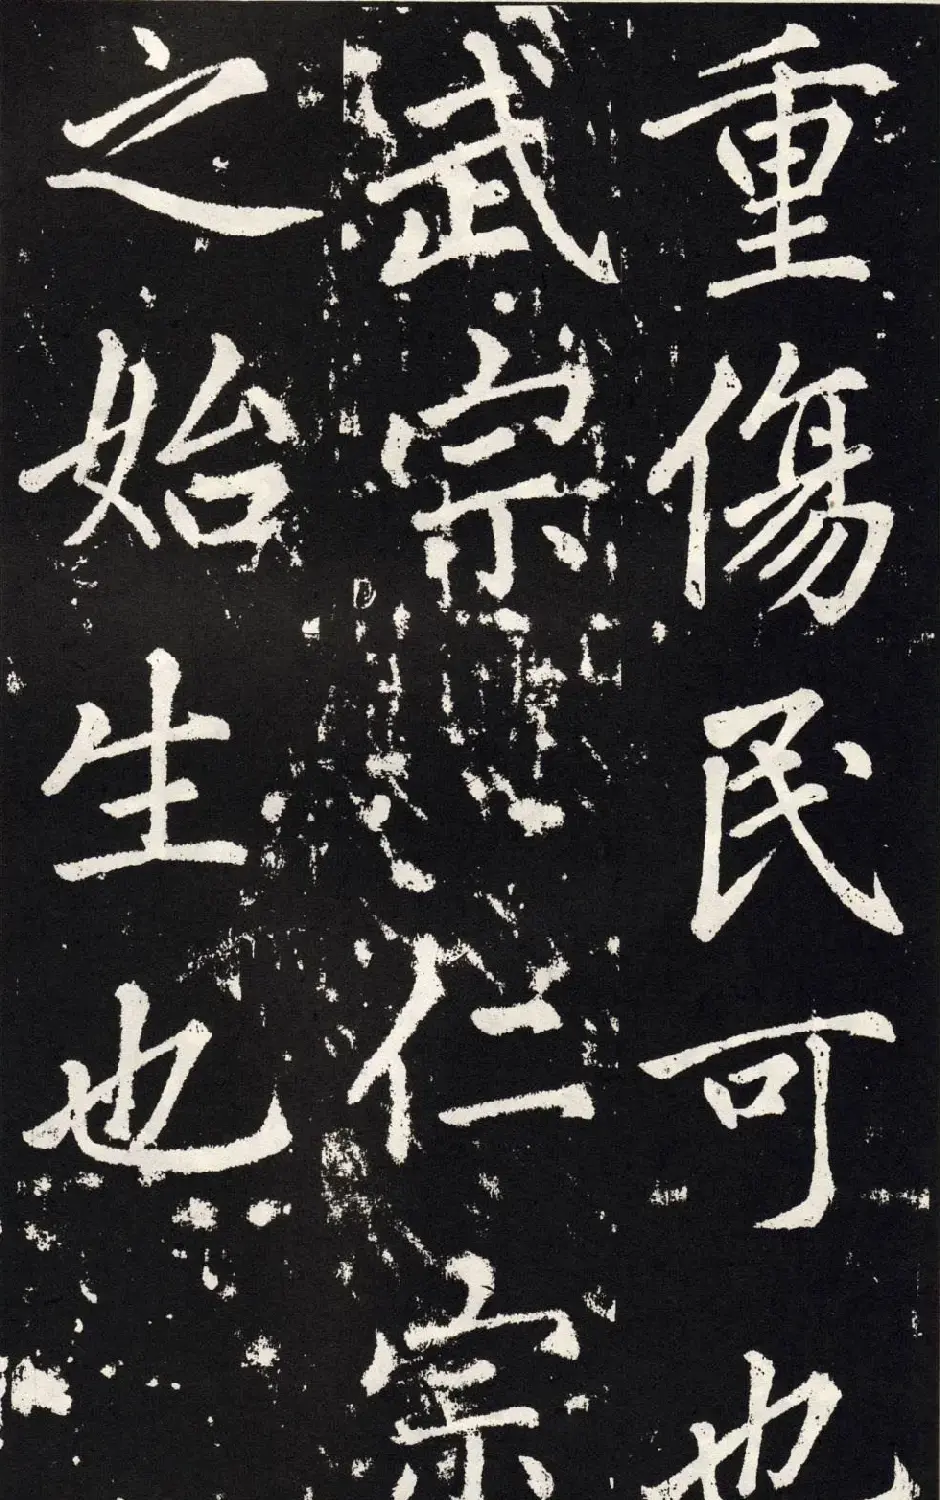 重傷民可也
武宗仁宗
之始生也